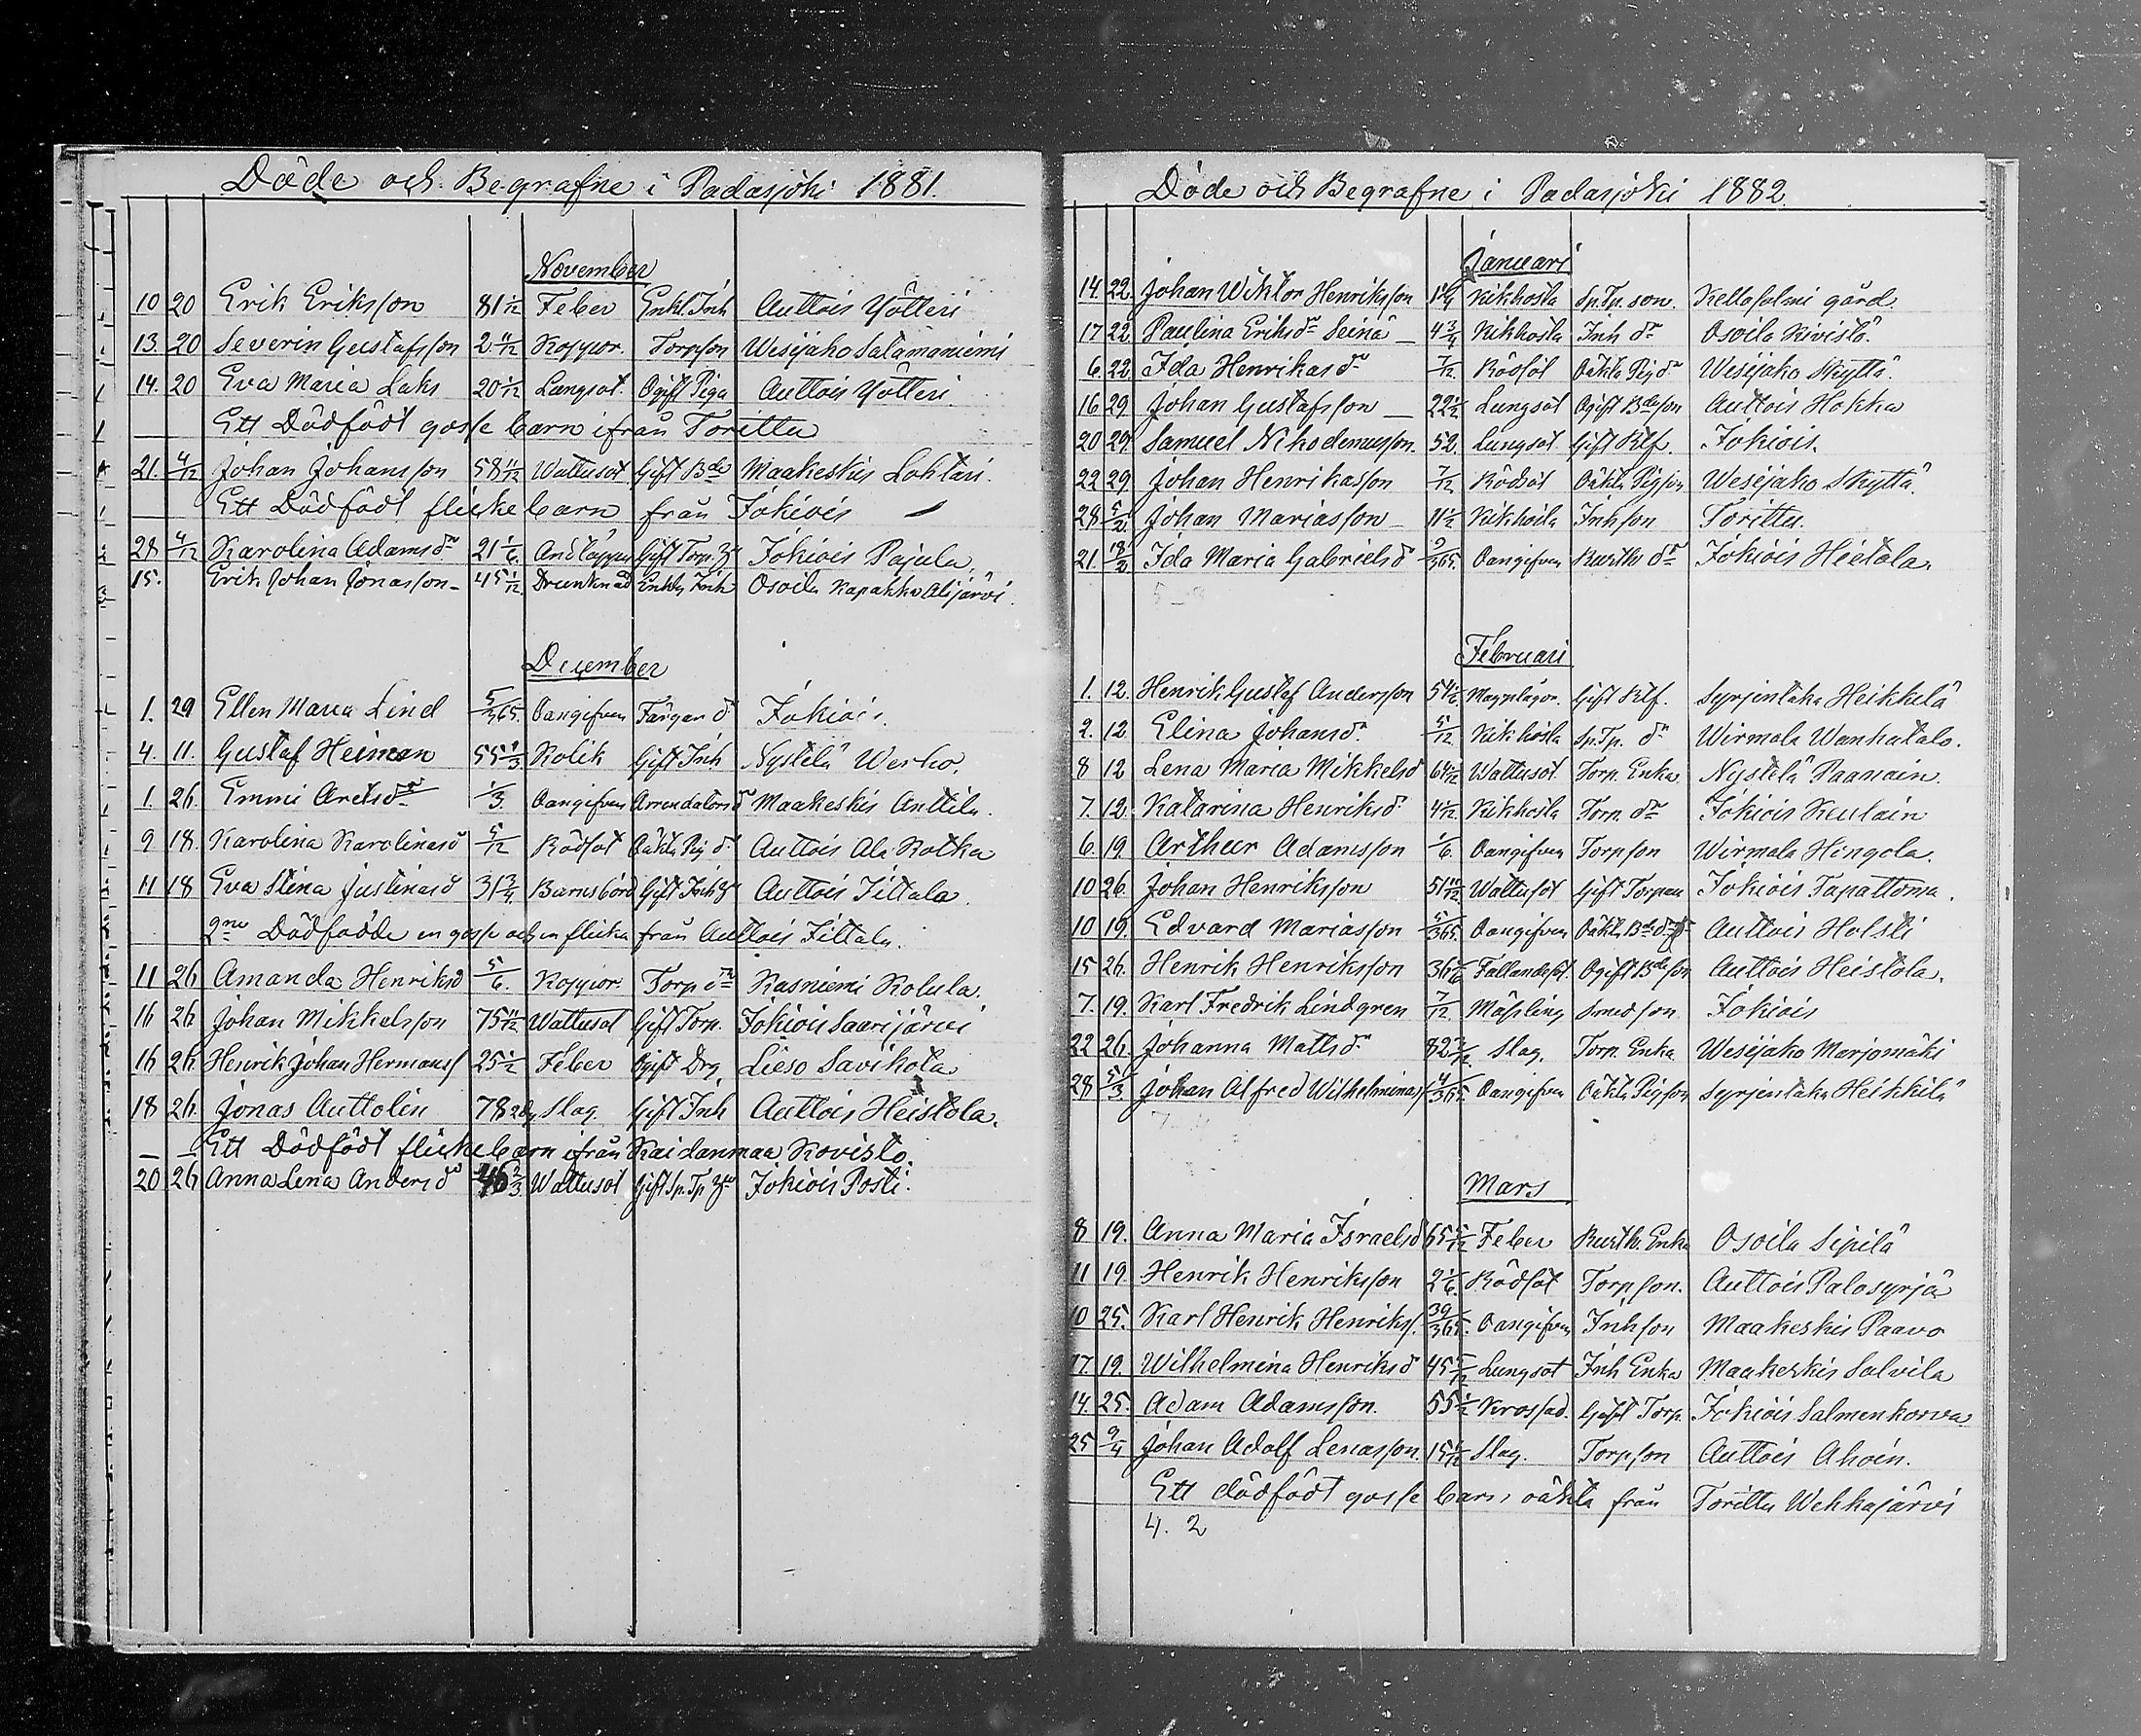 Döde och Begrafne i Padasjoki 1881.
November
10 20 Erik Eriksson 81 1/12 Feber Enkl. Inh Auttois Yötteri
13. 20 Severin Gustafsson 2 11/12 Koppor. Torpson Wesijako Salamaniemi
14. 20 Eva Maria Laks 20 1/12 Lungsot. Ogift Piga Auttois Yötteri
Ett Dödfödt gosse barn ifrån Toritta
21. 4/12 Johan Johansson 58 11/12 Wattusot Gift Bde Maakeskis Lohtari.
Ett Dödfödt flicke barn från Jokiois
28 4/12 Karolina Adamsdr 21 1/6. Andtäppa Gift Torp. Jokiois Pajula.
15. Erik Johan Jonasson - 45 1/12. Drunknad Enkl. Inh Osoila Kapakka Alijärvi.
December
1. 29 Ellen Maria Lind 5/365. Oangifven Färgar d Jokiois.
4. 11. Gustaf Heiman 55 1/3. Kolik Gift Inh Nystelä Werho.
1. 26. Emmi Aretsdr 1/3. Oangifven Arrendatorsd Maakeskis Anttila.
9 18. Karolina Karolinasd 5/12 Rödsot Oäkta Pig d Auttois Ala Kotka
11 18 Eva Stina Justinasd 31 3/4 Barnsbörd Gift Inh Auttois Tittala.
2ne Dödfödde en gosse och en flicka från Auttois Tittala.
11 26 Amanda Henriksd 5/6. Koppor. Torp dr Kasniemi Kolula.
16 26. Johan Mikkelsson 75 11/12 Wattusot Gift Torp. Jokiois Saarijärvi
16 26. Henrik Johan Hermans 25 1/2 Feber Ogift Drg. Lieso Savikota
18 26. Jonas Auttolin 78 2dg Slag. Gift Inh Auttois Heistola.
Ett Dödfödt flicke barn ifrån Kaidanmaa Kovisto.
20 26 Anna Lena Andersd 46 2/3. Wattusot Gift Sp. Tp Jokiois Posti.
Döde och Begrafne i Padasjoki 1882.
Januari
14. 22. Johan Wiktor Henriksson 1 1/4 Kikhosta Sp. Tp. son. Kellosalmi gård
17 22. Paulina Eriksdr Seinä - 4 3/4 Kikhosta Inh dr Osoila Kivistö.
6. 22 Ida Henrikasdr 7/12. Rödsot Oäkta Pig dr Wesijako Skyttä.
16 29 Johan Gustafsson - 22 1/2 Lungsot Ogift Bdeson Auttois Hokka
20 29. Samuel Nikodemusson. 52. Lungsot Gift Rtf. Jokiois.
22 29 Johan Henrikasson 7/12. Rödsot Oäkta Pigson Wesijako Skyttä.
28 5/2 Johan Mariasson - 11 1/2 Kikhosta Inhson Toritta.
21. 12/2 Ida Maria Gabrielsd 9/365. Oangifven Burthe dr Jokiois Hietola.
Februari
1. 12. Henrik Gustaf Andersson 54 1/2 Magplågor. Gift Rtf. Syrjentaka Heikkilä
2. 12 Elina Johansd. 5/12. Kikhosta Sp. Tp. dr Wirmala Wanhatalo.
8 12 Lena Maria Mikkelsd 64 1/12 Wattusot Torp. Enka Nystelä Paavoin.
7. 12. Katarina Henriksd. 4 1/12. Kikhosta Torp. dr Jokiois Keulain
6. 19 Arthur Adamsson 1/6. Oangifven Torpson Wirmala Hingola.
10 26. Johan Henriksson 51 11/12 Wattusot Gift Torpar Jokiois Tapattoma.
10 19. Edvard Mariasson 5/365. Oangifven Oäkta Bde Auttois Holsti
15 26. Henrik Henriksson 36 5/6 Fallandesot Ogift Bdeson Auttois Heistola.
7. 19. Karl Fredrik Lindgren 7/12. Mässling Smedson Jokiois
22 26. Johanna Mattsd. 82 7/12 Slag. Torp. Enka Wesijako Marjomäki
28 5/3 Johan Alfred Wilhelminas 4/365. Oangifven Oäkta Pigson Syrjentaka Heikkilä
Mars
8 19. Anna Maria Israelsd 65 5/12 Feber Burth. Enka Osoila Sipilä
11 19. Henrik Henriksson 2 1/6. Rödsot Torpson. Auttois Palosyrjä
10 25. Karl Henrik Henriks. 39/365. Oangifven Inhson Maakeskis Paavo
17. 19. Wilhelmina Henriksd 45 5/12 Lungsot Inh Enka Maakeskis Salvila
14. 25. Adam Adamsson. 55 1/2 Krossad. Gift Torp. Jokiois Salmenkorva
25 9/4 Johan Adolf Lenasson. 15 1/12 Slag. Torpson Auttois Ahoin.
Ett dödfödt gosse barn, oäkta från Toritta Wehkajärvi
4. 2